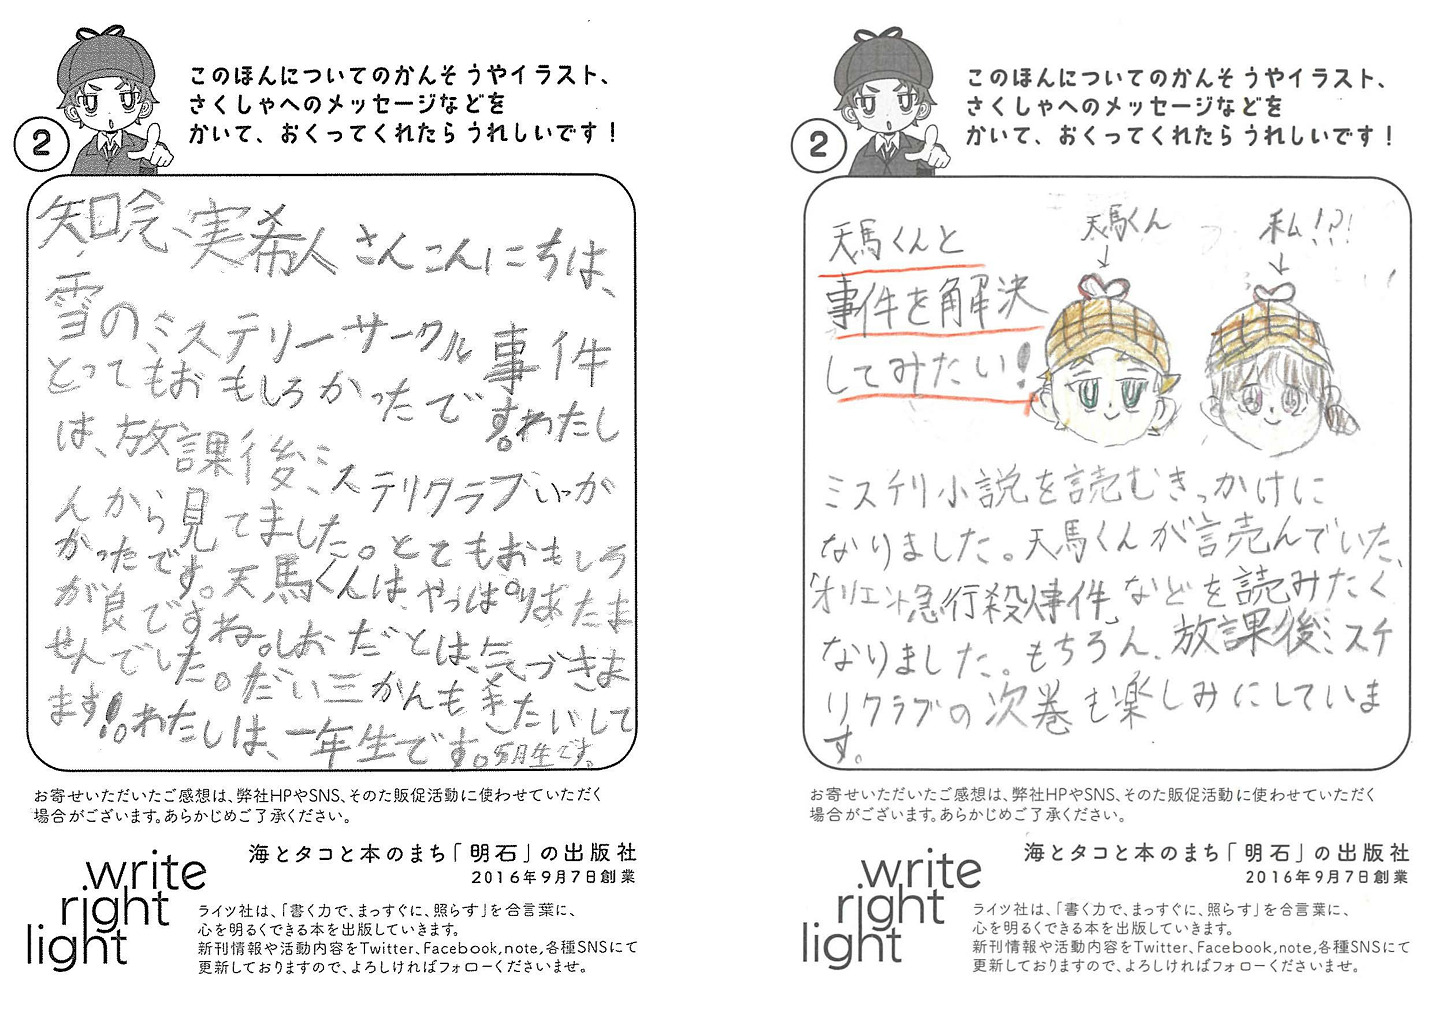 このほんについてのかんそうやイラスト、
さくしゃへのメッセージなどを
かいて、おくってくれたらうれしいです！
2
知念、実希人さんこんにちは、
雪のミステリーサークル事件
とってもおもしろかったです。わたし
は、放課後ミステリクラブいっか
んから見てました。とてもおもしろ
かったです。天馬くんは、やっぱりあたま
が良ですね。しおだとは、気づきま
せんでした。だい三かんもきたいして
ます!!。わたしは、一年生です。5月生です。
お寄せいただいたご感想は、弊社HPやSNS、そのた販促活動に使わせていただく
場合がございます。あらかじめご了承ください。
write
right
light
海とタコと本のまち「明石」の出版社
2016年9月7日創業
ライツ社は、「書く力で、まっすぐに、照らす」を合言葉に、
心を明るくできる本を出版していきます。
新刊情報や活動内容をTwitter、Facebook,note,各種SNSにて
更新しておりますので、よろしければフォローくださいませ。
このほんについてのかんそうやイラスト、
さくしゃへのメッセージなどを
かいて、おくってくれたらうれしいです！
2
天馬くんと
事件を解決
してみたい!
天馬くん
私!?!
ミステリ小説を読むきっかけに
なりました。天馬くんが読んでいた、
「オリエント急行殺人事件」などを読みたく
なりました。もちろん、放課後ミステ
リクラブの次巻も楽しみにしていま
す。
お寄せいただいたご感想は、弊社HPやSNS、そのた販促活動に使わせていただく
場合がございます。あらかじめご了承ください。
write
right
light
海とタコと本のまち「明石」の出版社
2016年9月7日創業
ライツ社は、「書く力で、まっすぐに、照らす」を合言葉に、
心を明るくできる本を出版していきます。
新刊情報や活動内容をTwitter、Facebook,note,各種SNSにて
更新しておりますので、よろしければフォローくださいませ。